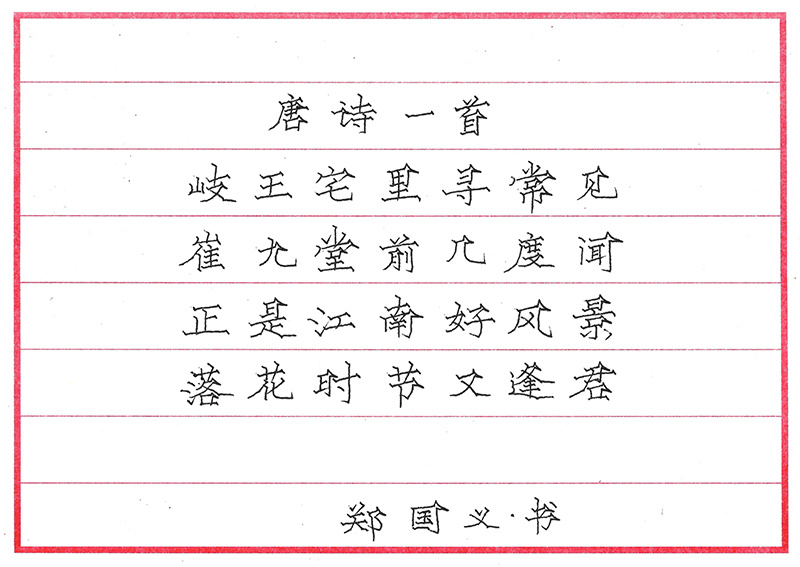 唐诗一首
岐王宅里寻常见
崔九堂前几度闻
正是江南好风景
落花时节又逢君
郑国义·书